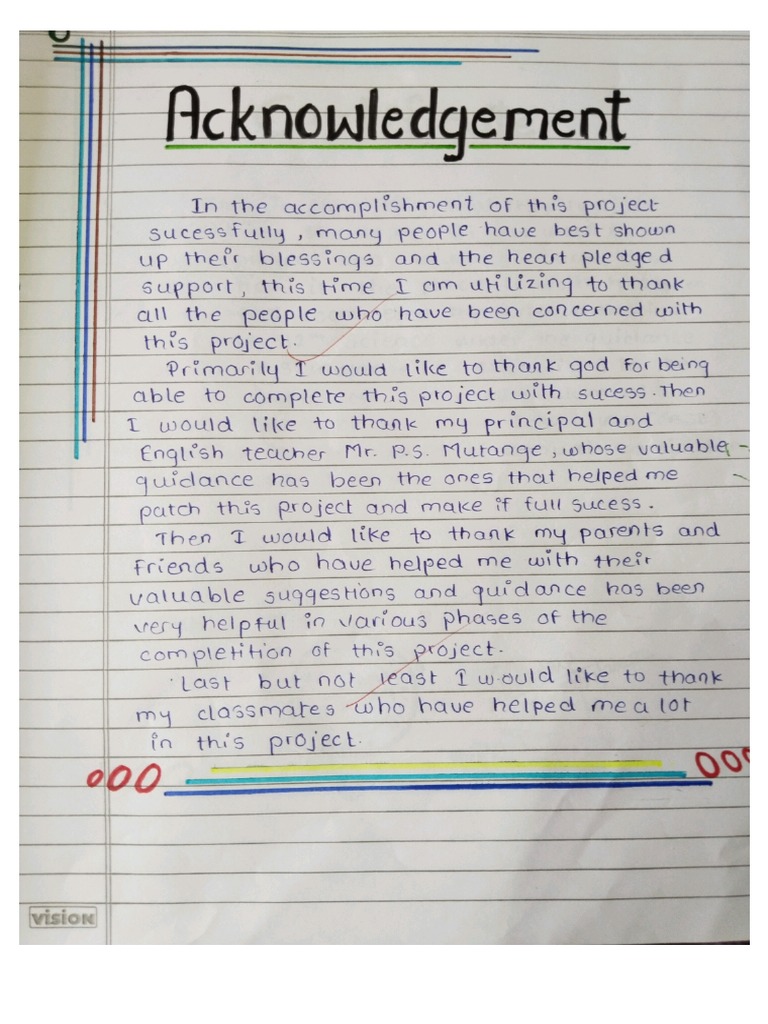 Acknowledgement
In the accomplishment of this project
sucessfully, many people have best shown
up their blessings and the heart pledged
support, this time I am utilizing to thank
all the people who have been concerned with
this project.
Primarily I would like to thank god for being
able to complete this project with sucess. Then
I would like to thank my principal and
English teacher Mr. P.S. Mutange, whose valuable
guidance has been the ones that helped me
patch this project and make if full sucess.
Then I would like to thank my parents and
friends who have helped me with their
valuable suggestions and guidance has been
very helpful in various phases of the
completition of this project.
Last but not least I would like to thank
my classmates who have helped me a lot
in this project.
vision